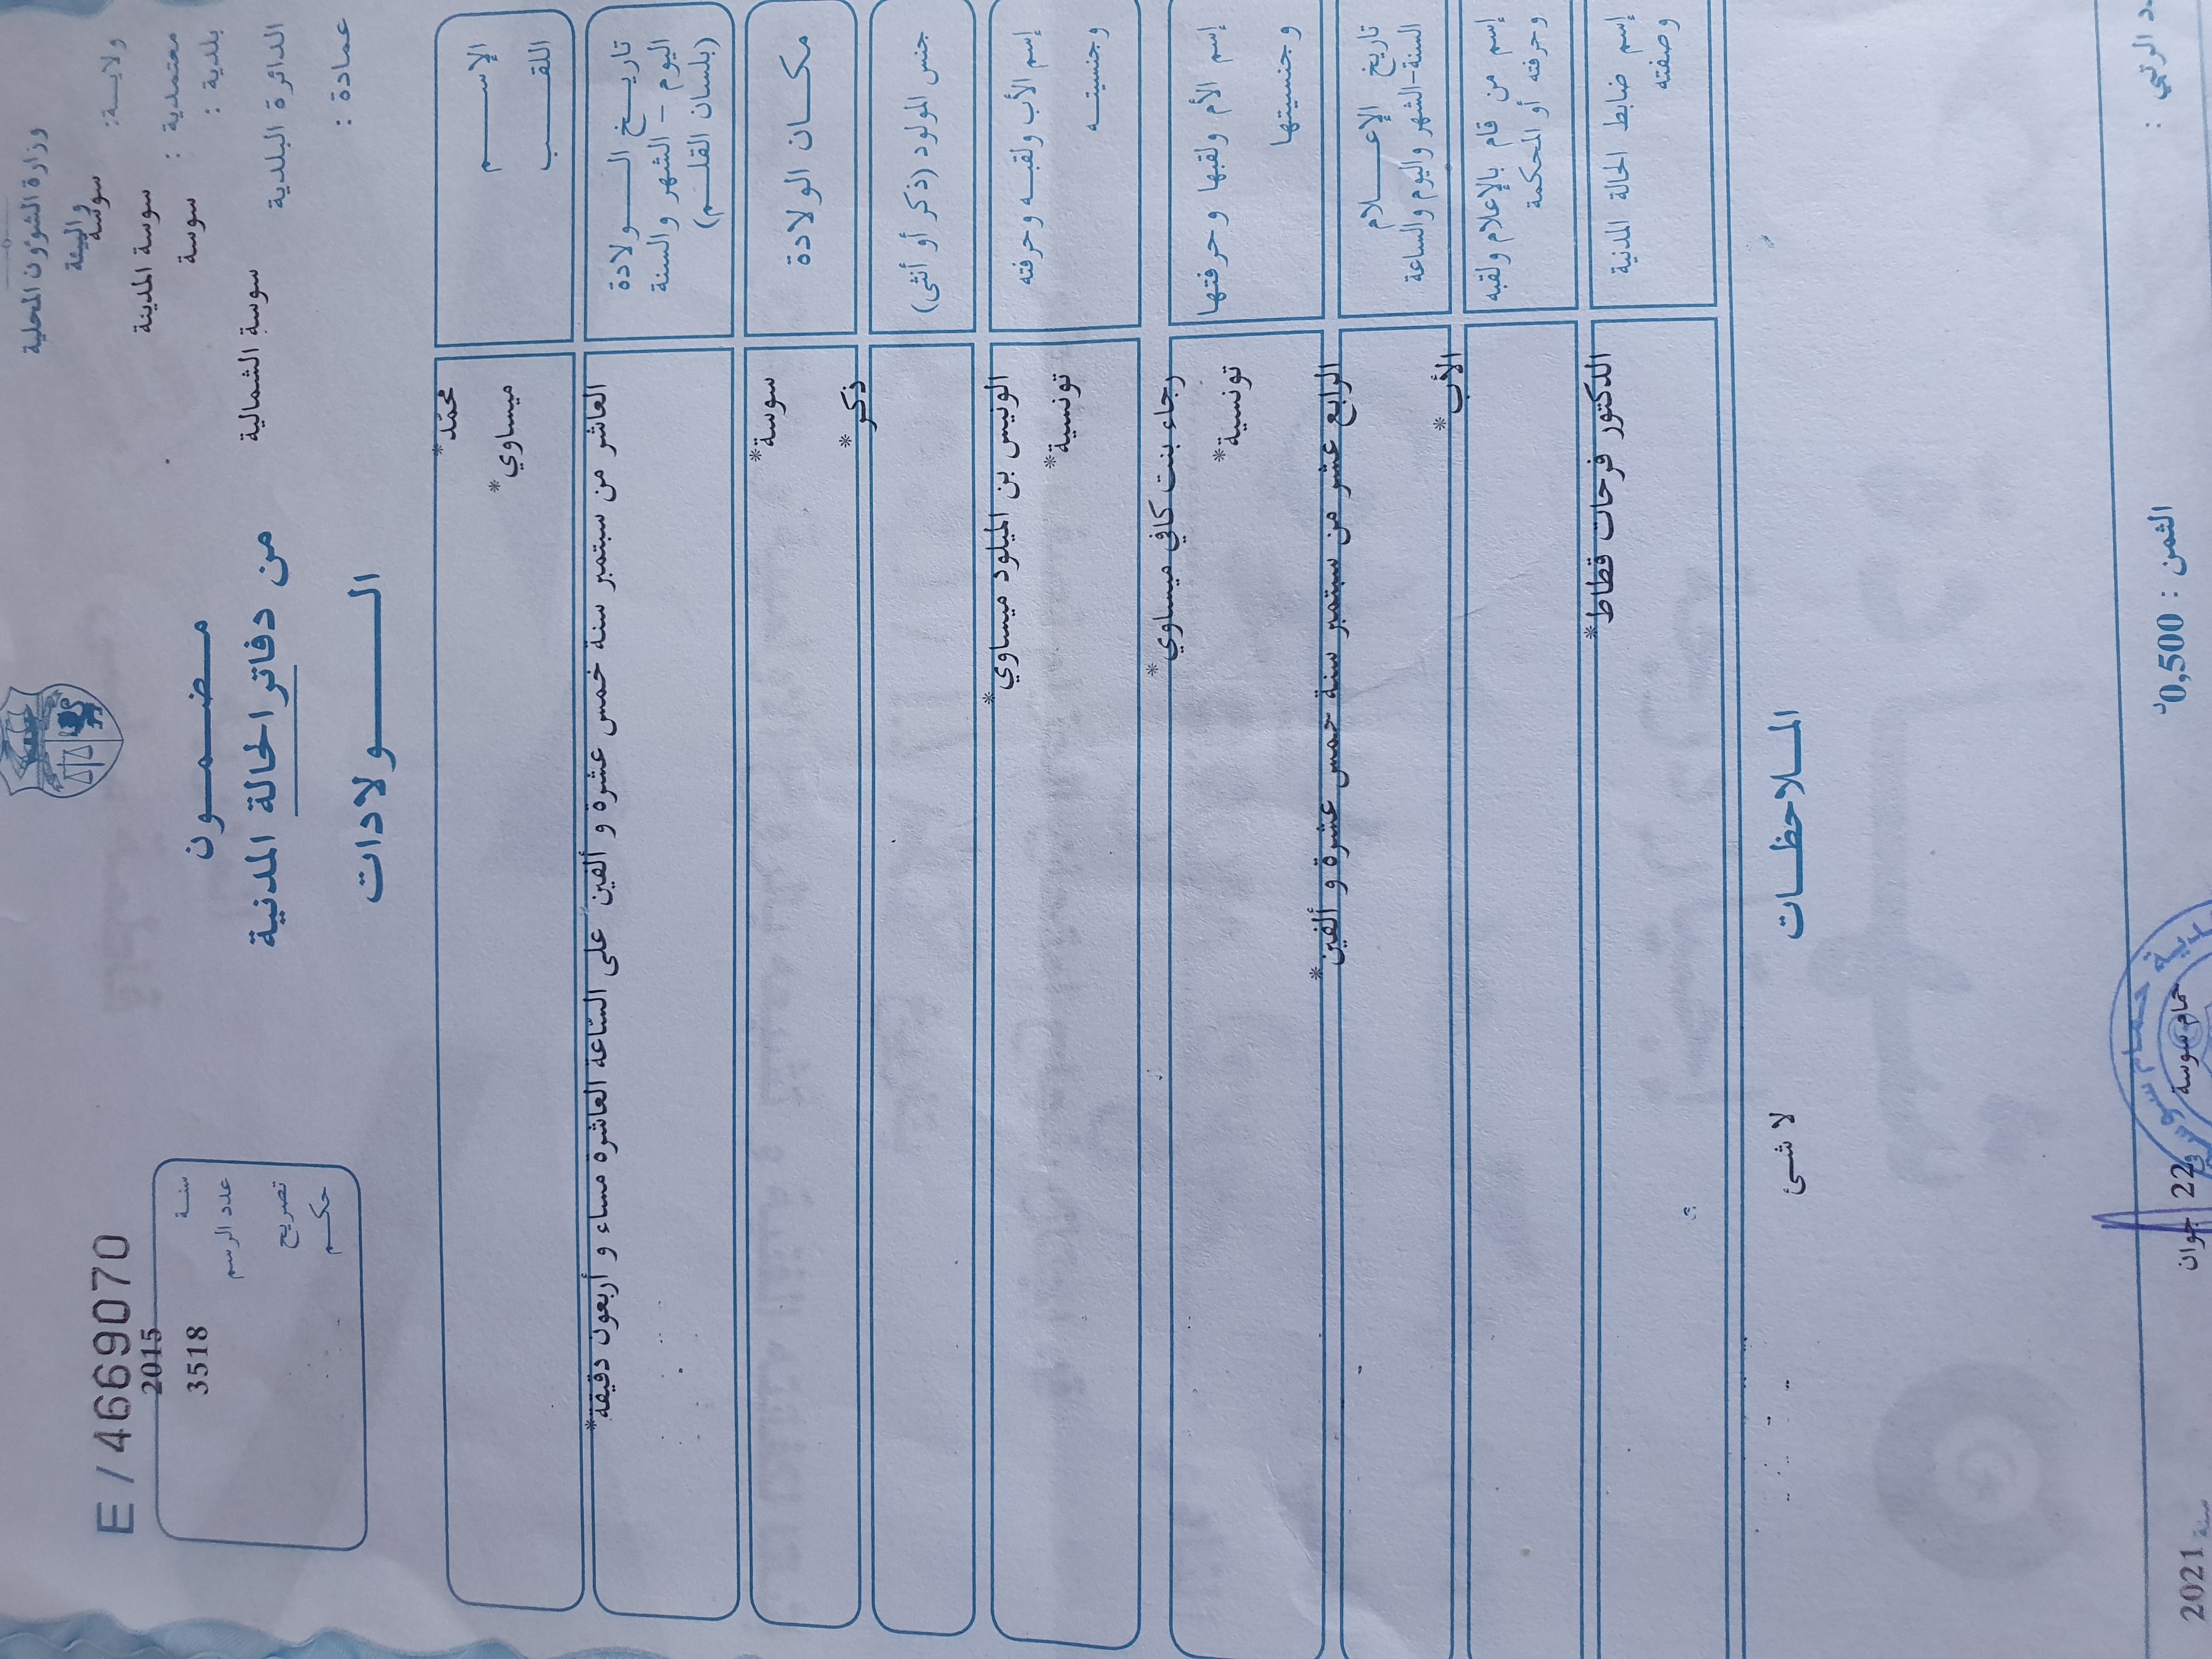 وزارة الشؤون المحلية
والبيئة
ولايـــة: سوسة
معتمدية : سوسة المدينة
بلدية : سوسة
الدائرة البلدية سوسة الشمالية
عمادة :
مـــضـــمــــون
من دفاتر الحالة المدنية
الــــــولادات
E / 4669070
سنـة 2015
عدد الرسم 3518
تصريح
حكـــم
الإســــــم محمّد*
اللقـــــب ميساوي*
تاريـــخ الـــــولادة
اليوم – الشهر والسنة
(بلسان القلـــم)
العاشر من سبتمبر سنة خمس عشرة و ألفين على السّاعة العاشرة مساء و أربعون دقيقة*
مكـــان الولادة سوسة*
جنس المولود (ذكر أو أنثى) ذكر*
إسم الأب ولقبـه وحرفته الونيس بن الميلود ميساوي*
وجنسيتـــه تونسية*
إسم الأم ولقبها وحرفتها رجاء بنت كافي ميساوي*
وجنسيتها تونسية*
تاريخ الإعــــلام
السنة-الشهر واليوم والساعة
الرابع عشر من سبتمبر سنة خمس عشرة و ألفين*
إسم من قام بالإعلام ولقبه
وحرفته أو المحكمة
الأب*
إسم ضابط الحالة المدنية
وصفته
الدكتور فرحات قطاط*
المـــلاحظـــات
لا شئ
الرتبي :
الثمن : 0,500د
حمام سوسة في 22 جوان سنة 2021